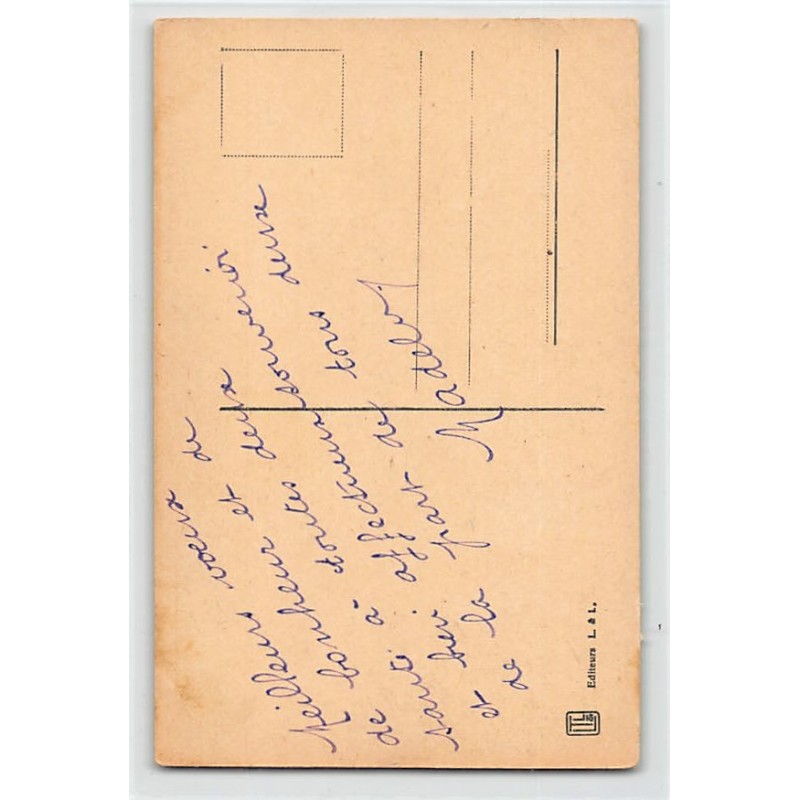 Meilleurs vœux de
bonheur et
de santé à toutes deux
et bien affectueux souvenir
de la part de tous deux
Editeurs L. & L.